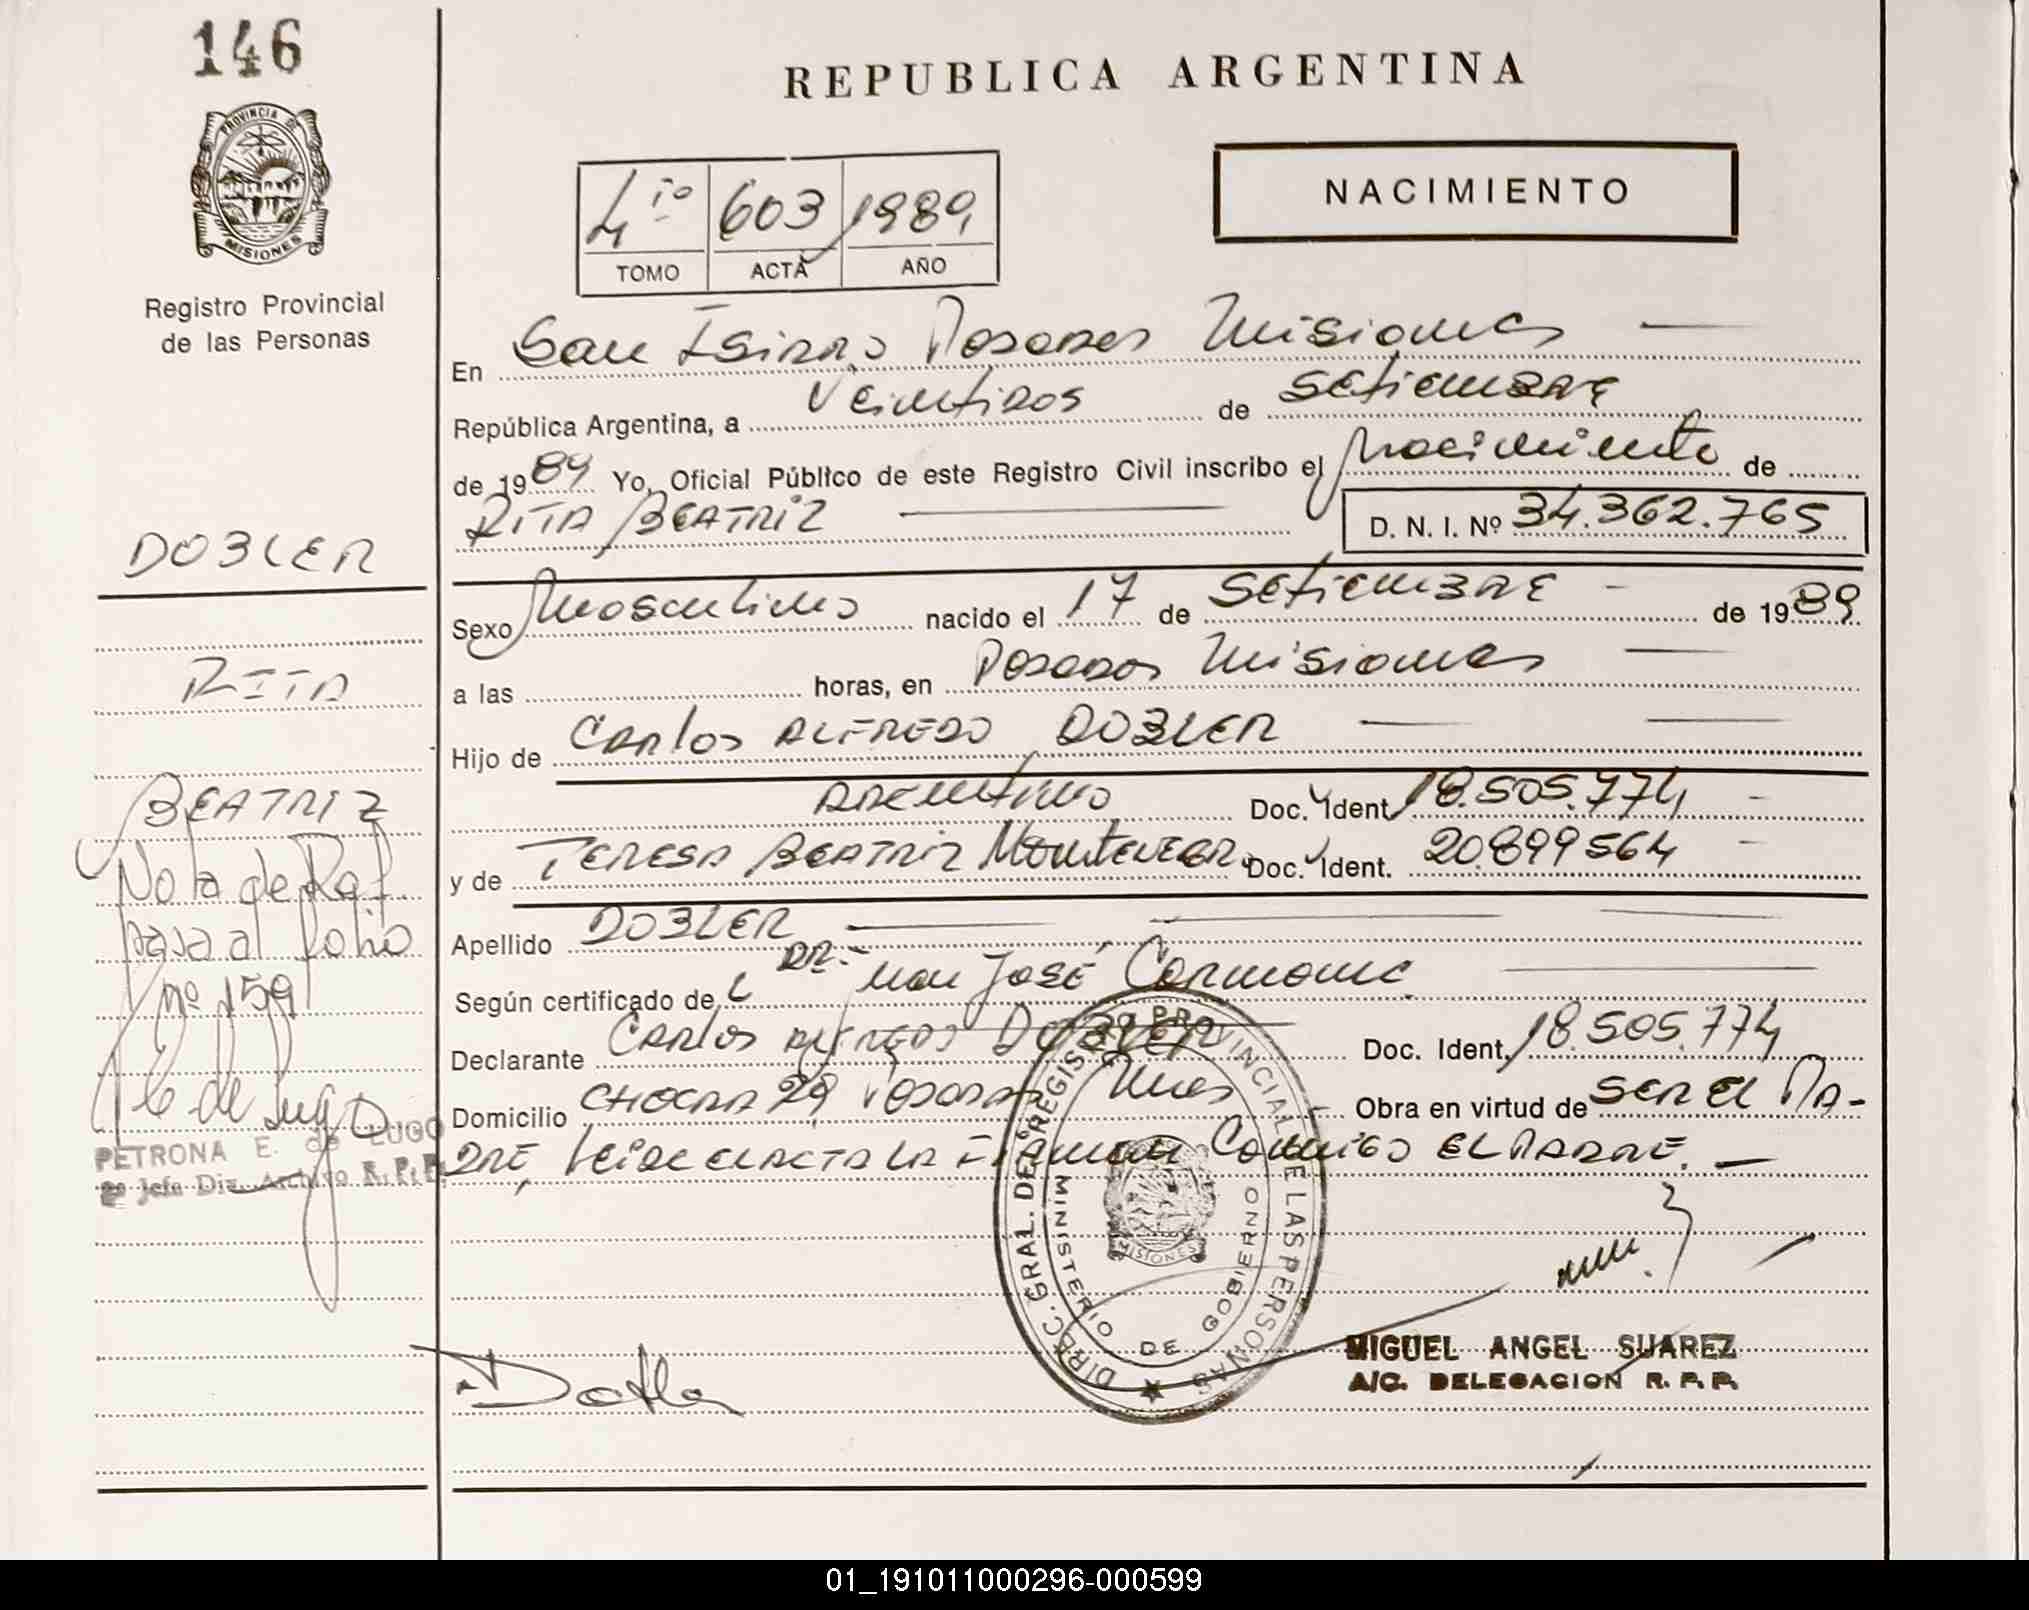 146
PROVINCIA DE
MISIONES
Registro Provincial
de las Personas
DOBLER
RITA
BEATRIZ
Nota de Ref.
pasa al folio
nº 159
PETRONA E. de LUGO
2º Jefe Div. Archivo R. P. P.
REPUBLICA ARGENTINA
NACIMIENTO
4to 603 1989
TOMO ACTA AÑO
En San Isidro Posadas Misiones
República Argentina, a Veintidos de SEtiEMBRE
de 1989 Yo, Oficial Público de este Registro Civil inscribo el Nacimiento de
RITA BEATRIZ D. N. I. Nº 34.362.765
Sexo Masculino nacido el 17 de SEtiEMBRE de 1989
a las horas, en Posadas Misiones
Hijo de Carlos ALFREDO DOBLER
Argentino Doc. Ident. 18.505.774
y de TERESA BEATRIZ Doc. Ident. 20.899564
Apellido DOBLER
Según certificado de DR. Juan José Carmona
Declarante Carlos ALFREDO DOBLER Doc. Ident. 18.505.774
Domicilio 29 Posadas Mnes Obra en virtud de SER EL PA-
DRE, Leida el ACTA LA FIRMAN CONMIGO EL PADRE.
DIREC. GRAL. DEL REGISTRO PROVINCIAL DE LAS PERSONAS
MINISTERIO DE GOBIERNO
MISIONES
MIGUEL ANGEL SUAREZ
A/C. DELEGACION R. P. P.
01_191011000296-000599